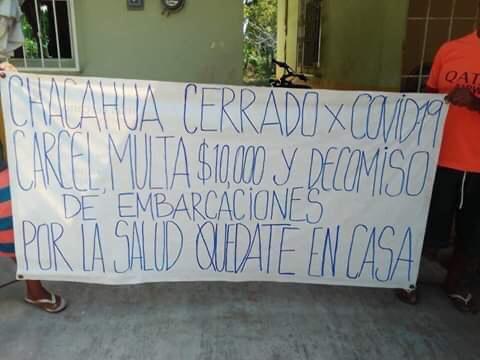 CHACAHUA CERRADO X COVID19
CARCEL, MULTA $10,000 Y DECOMISO
DE EMBARCACIONES
POR LA SALUD QUEDATE EN CASA
QATAR